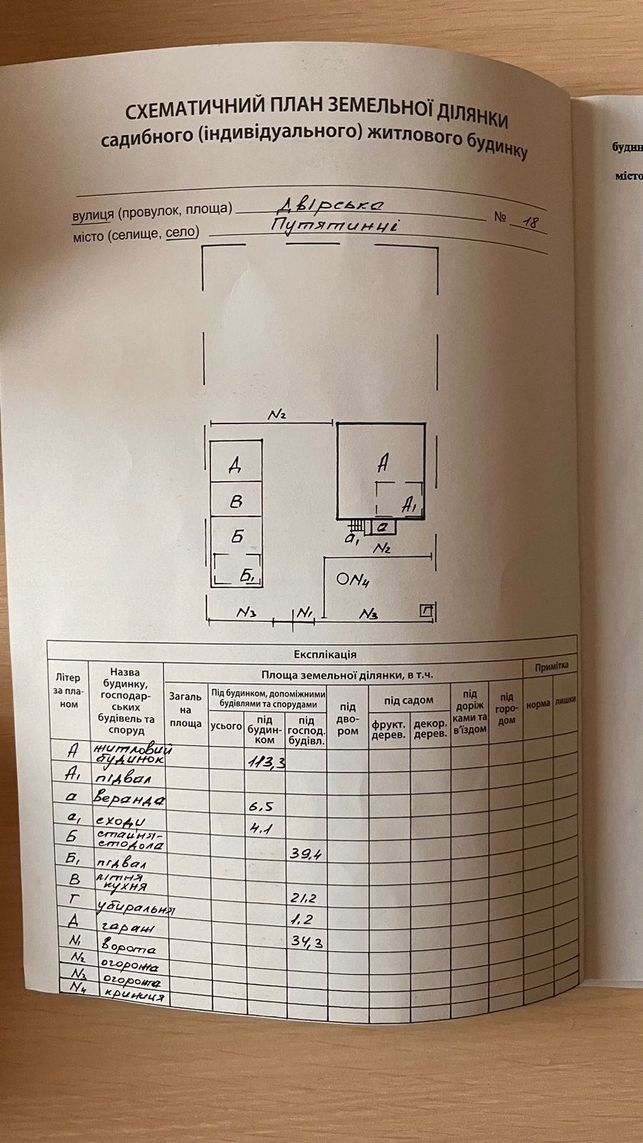 СХЕМАТИЧНИЙ ПЛАН ЗЕМЕЛЬНОЇ ДІЛЯНКИ
садибного (індивідуального) житлового будинку
вулиця (провулок, площа) Двірська № 18
місто (селище, село) Путятинці
будин
місто
N₂
Д
В
Б
Б₁
А
А₁
а
а₁
N₂
N₄
N₃
N₁
N₃
Г
Експлікація
Літер за пла- ном
Назва будинку, господар- ських будівель та споруд
Площа земельної ділянки, в т.ч.
Примітка
Загаль на площа
Під будинком, допоміжними будівлями та спорудами
усього
під будин- ком
під господ. будівл.
під дво- ром
під садом
фрукт. дерев.
декор. дерев.
під доріж ками та в'їздом
під горо- дом
норма
лишки
А житловий будинок 113,3
А₁ підвал
а веранда 6,5
а₁ сходи 4.1
Б стайня- стодола 39,4
Б₁ підвал
В літня кухня 21,2
Г убиральня 1,2
Д гараж 34,3
N₁ ворота
N₂ огорожа
N₃ огорожа
N₄ криниця